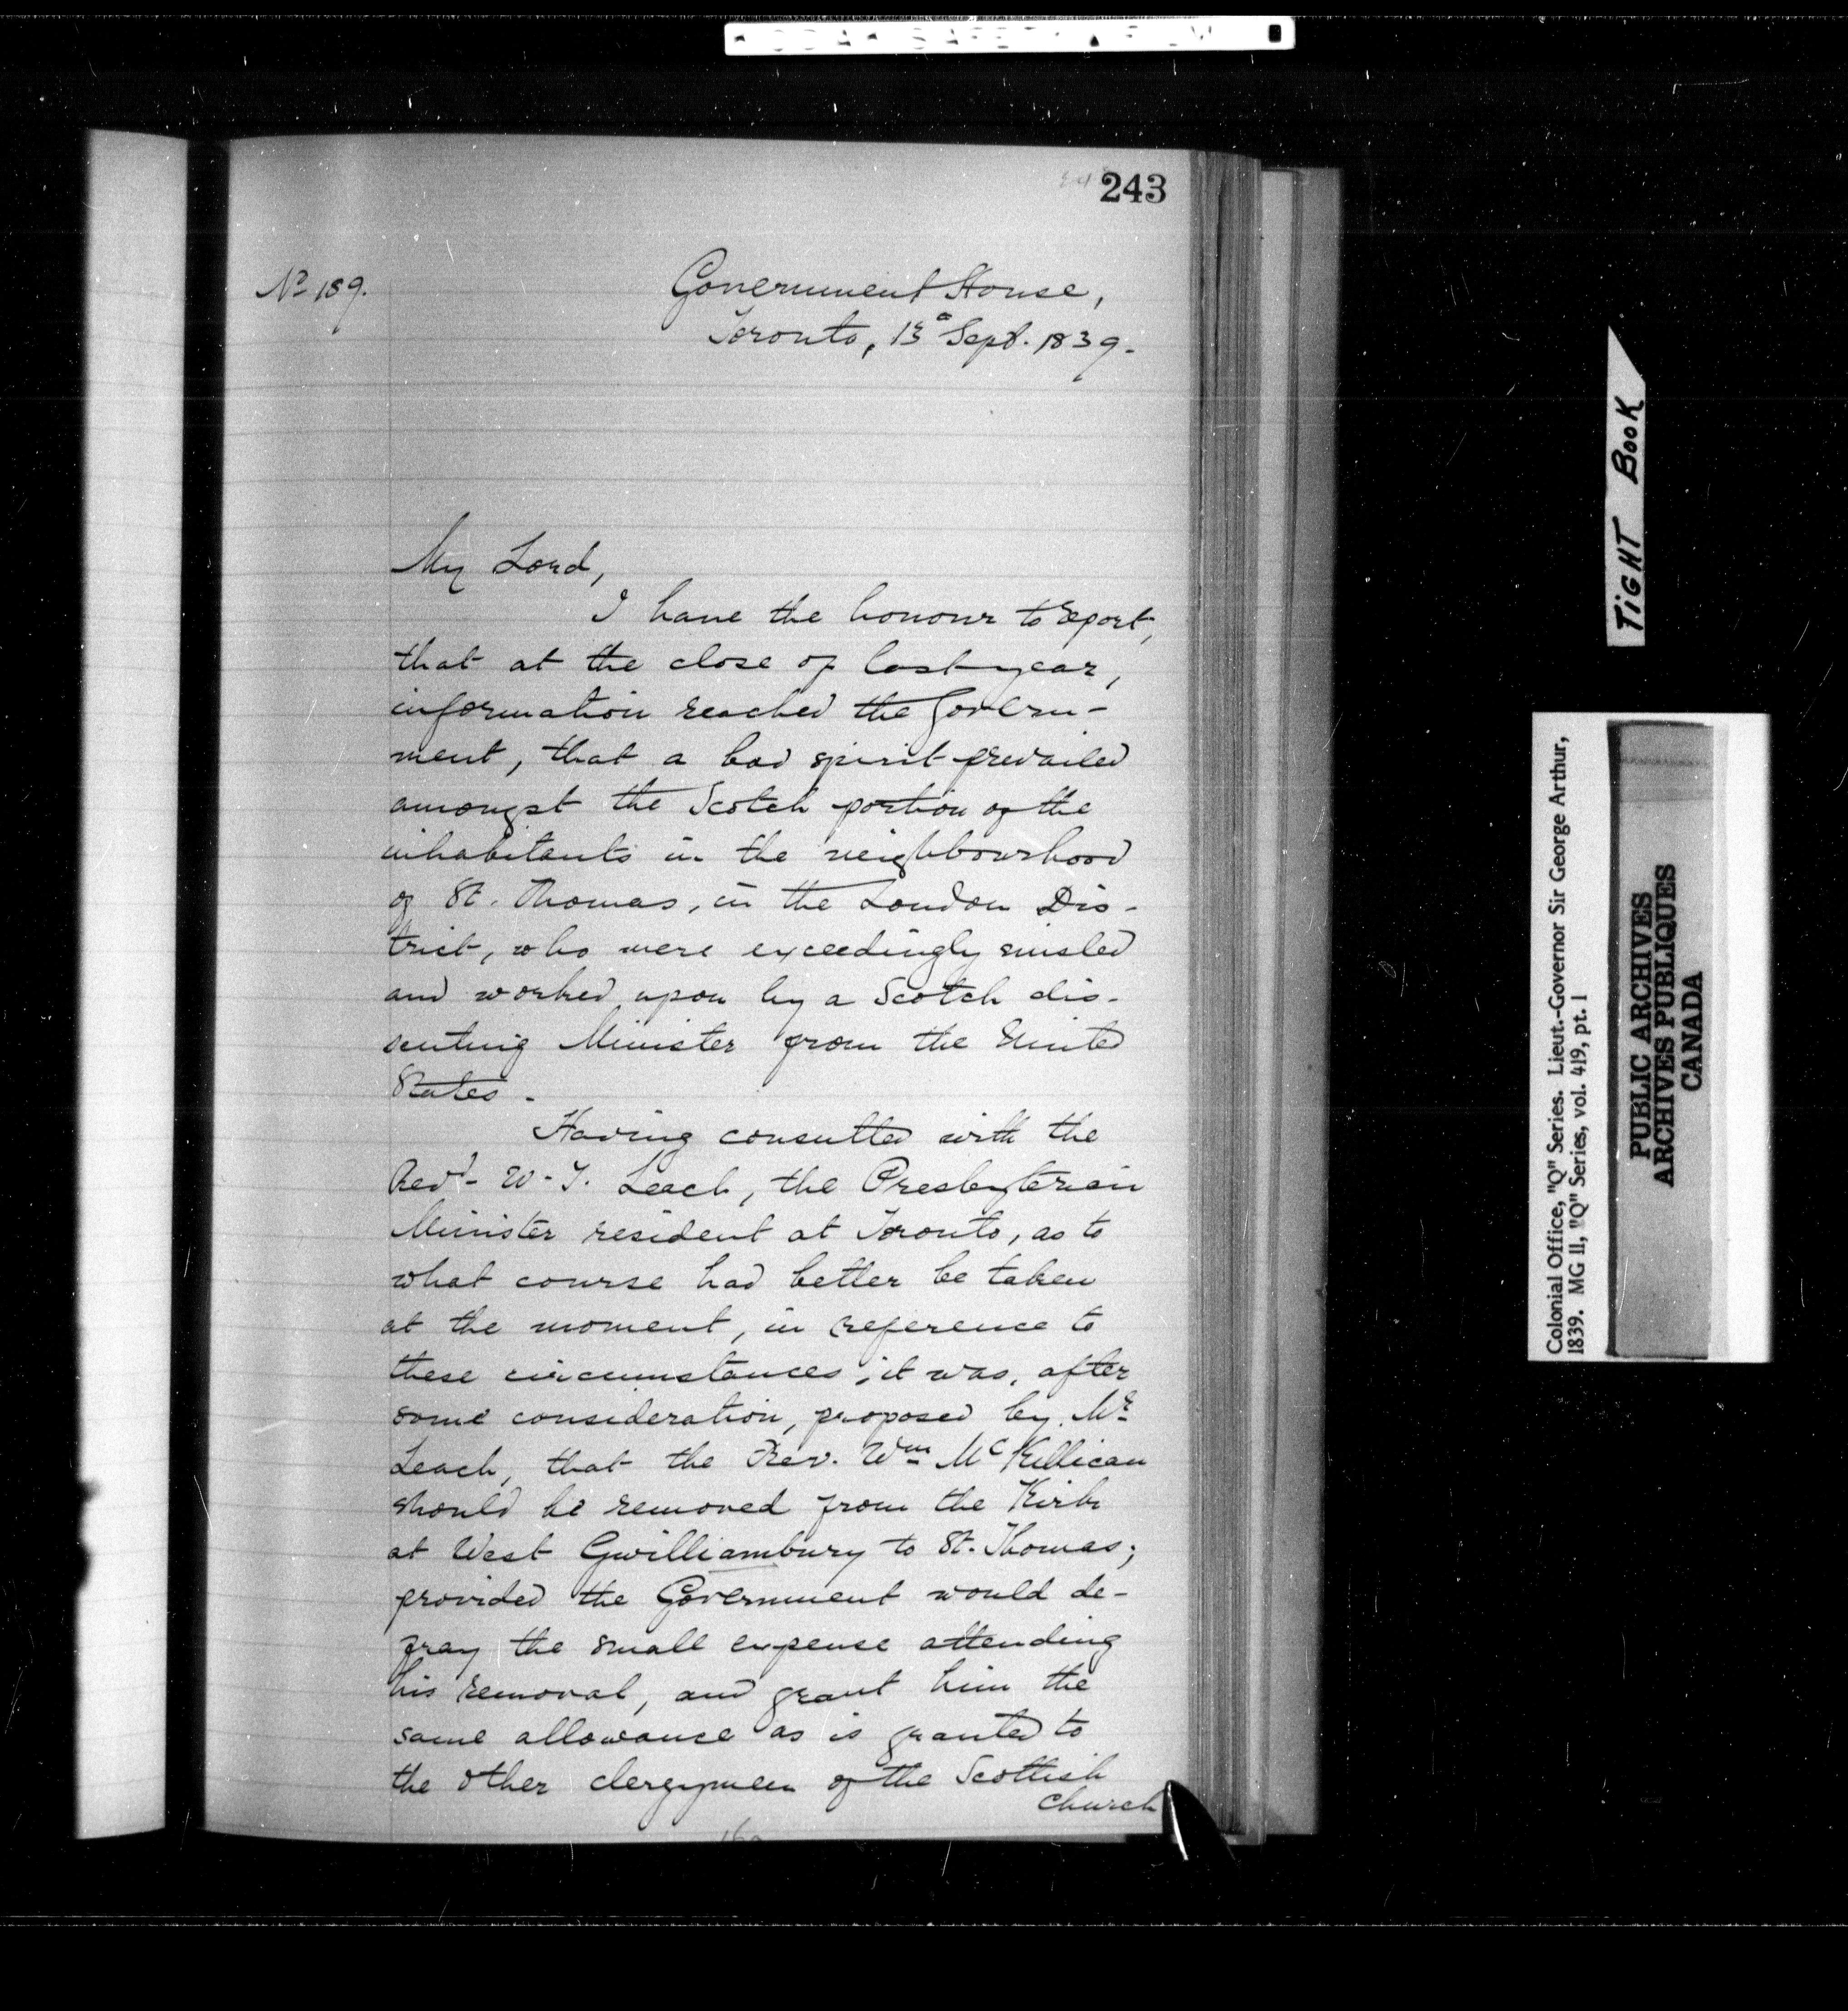 243
No 189.
Government House,
Toronto, 13th Sept. 1839.
My Lord,
I have the honour to report,
that at the close of last year,
information reached the Govern-
ment, that a bad spirit prevailed
amongst the Scotch portion of the
inhabitants in the neighbourhood
of St. Thomas, in the London Dis-
trict, who were exceedingly misled
and worked upon by a Scotch dis-
senting Minister from the United
States.
Having consulted with the
Revd W. T. Leach, the Presbyterian
Minister resident at Toronto, as to
what course had better be taken
at the moment, in reference to
these circumstances; it was, after
some consideration, proposed by Mr
Leach, that the Rev. Wm McKillican
should be removed from the Kirk
at West Gwilliambury to St. Thomas;
provided the Government would de-
fray the small expense attending
his removal, and grant him the
same allowance as is granted to
the other clergymen of the Scottish
Church
TIGHT BOOK
Colonial Office, "Q" Series. Lieut.-Governor Sir George Arthur,
1839. MG 11, "Q" Series, vol. 419, pt. 1
PUBLIC ARCHIVES
ARCHIVES PUBLIQUES
CANADA